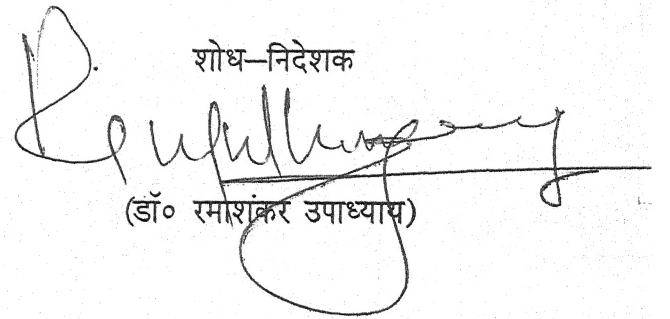 शोध—निदेशक
(डॉ० रमाशंकर उपाध्याय)